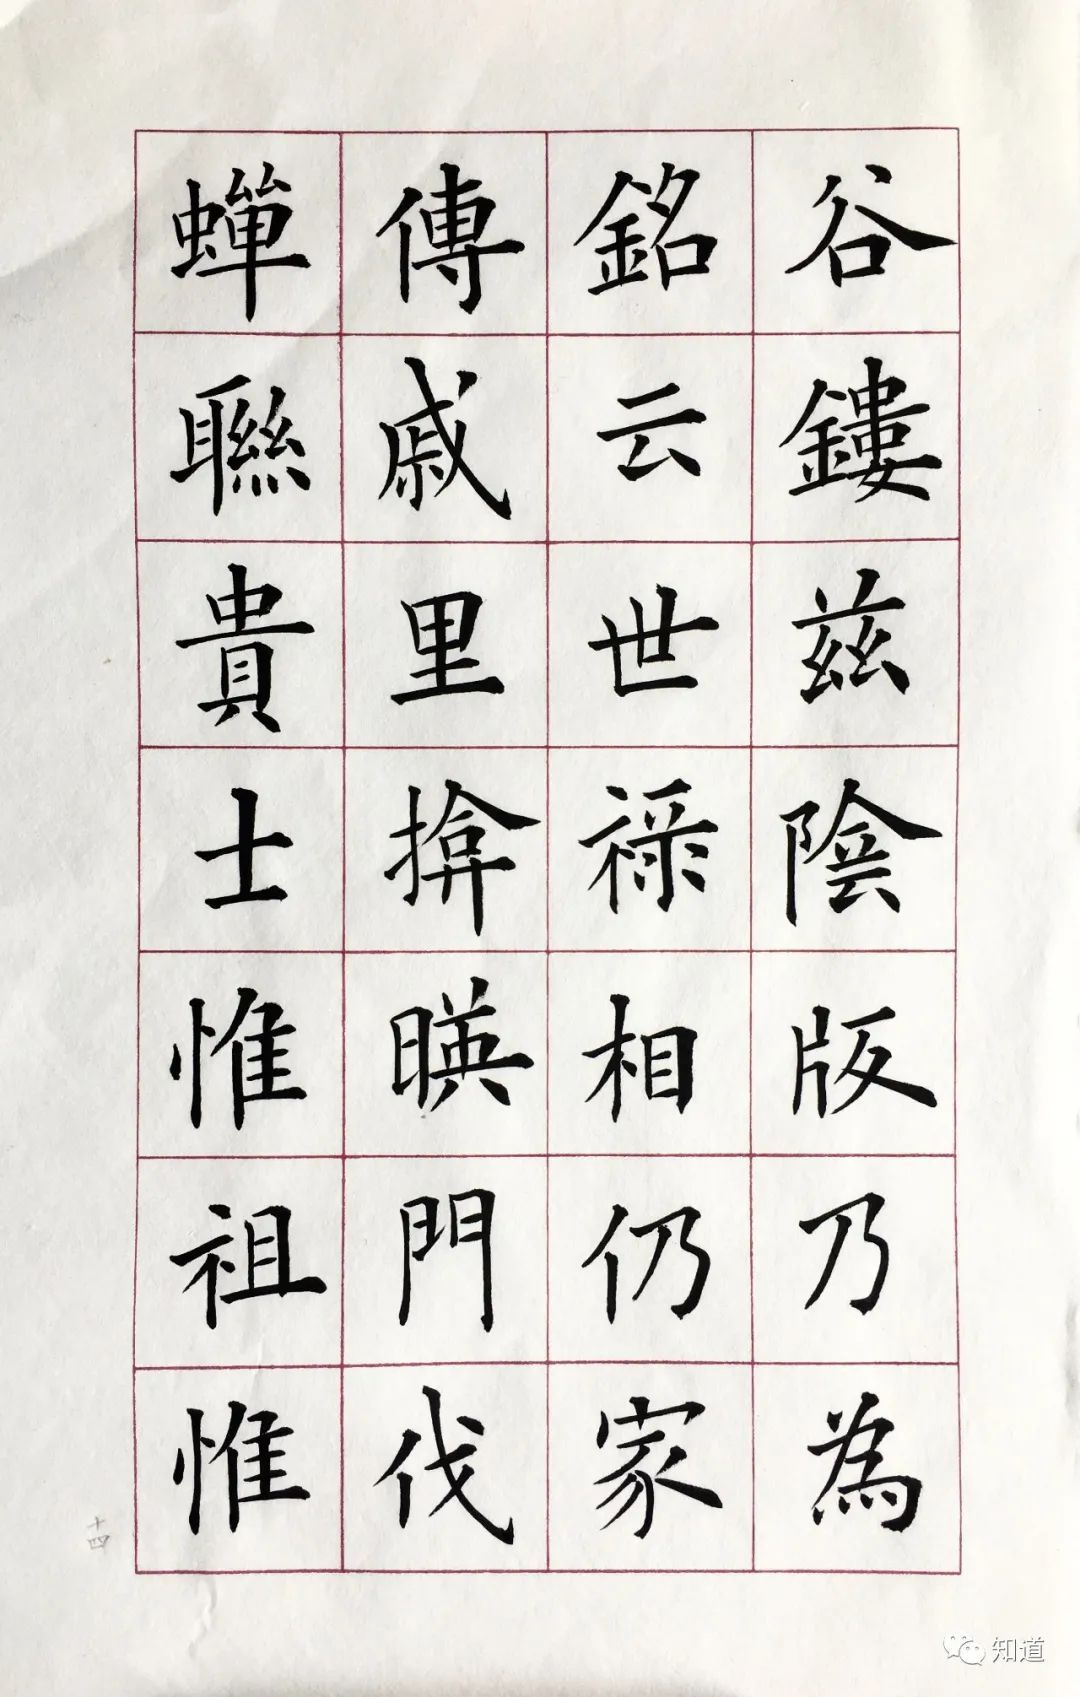 谷鏤茲陰版乃為
銘云世祿相仍家
傳戚里揜暎門伐
蟬聯貴士惟祖惟
十四
知道